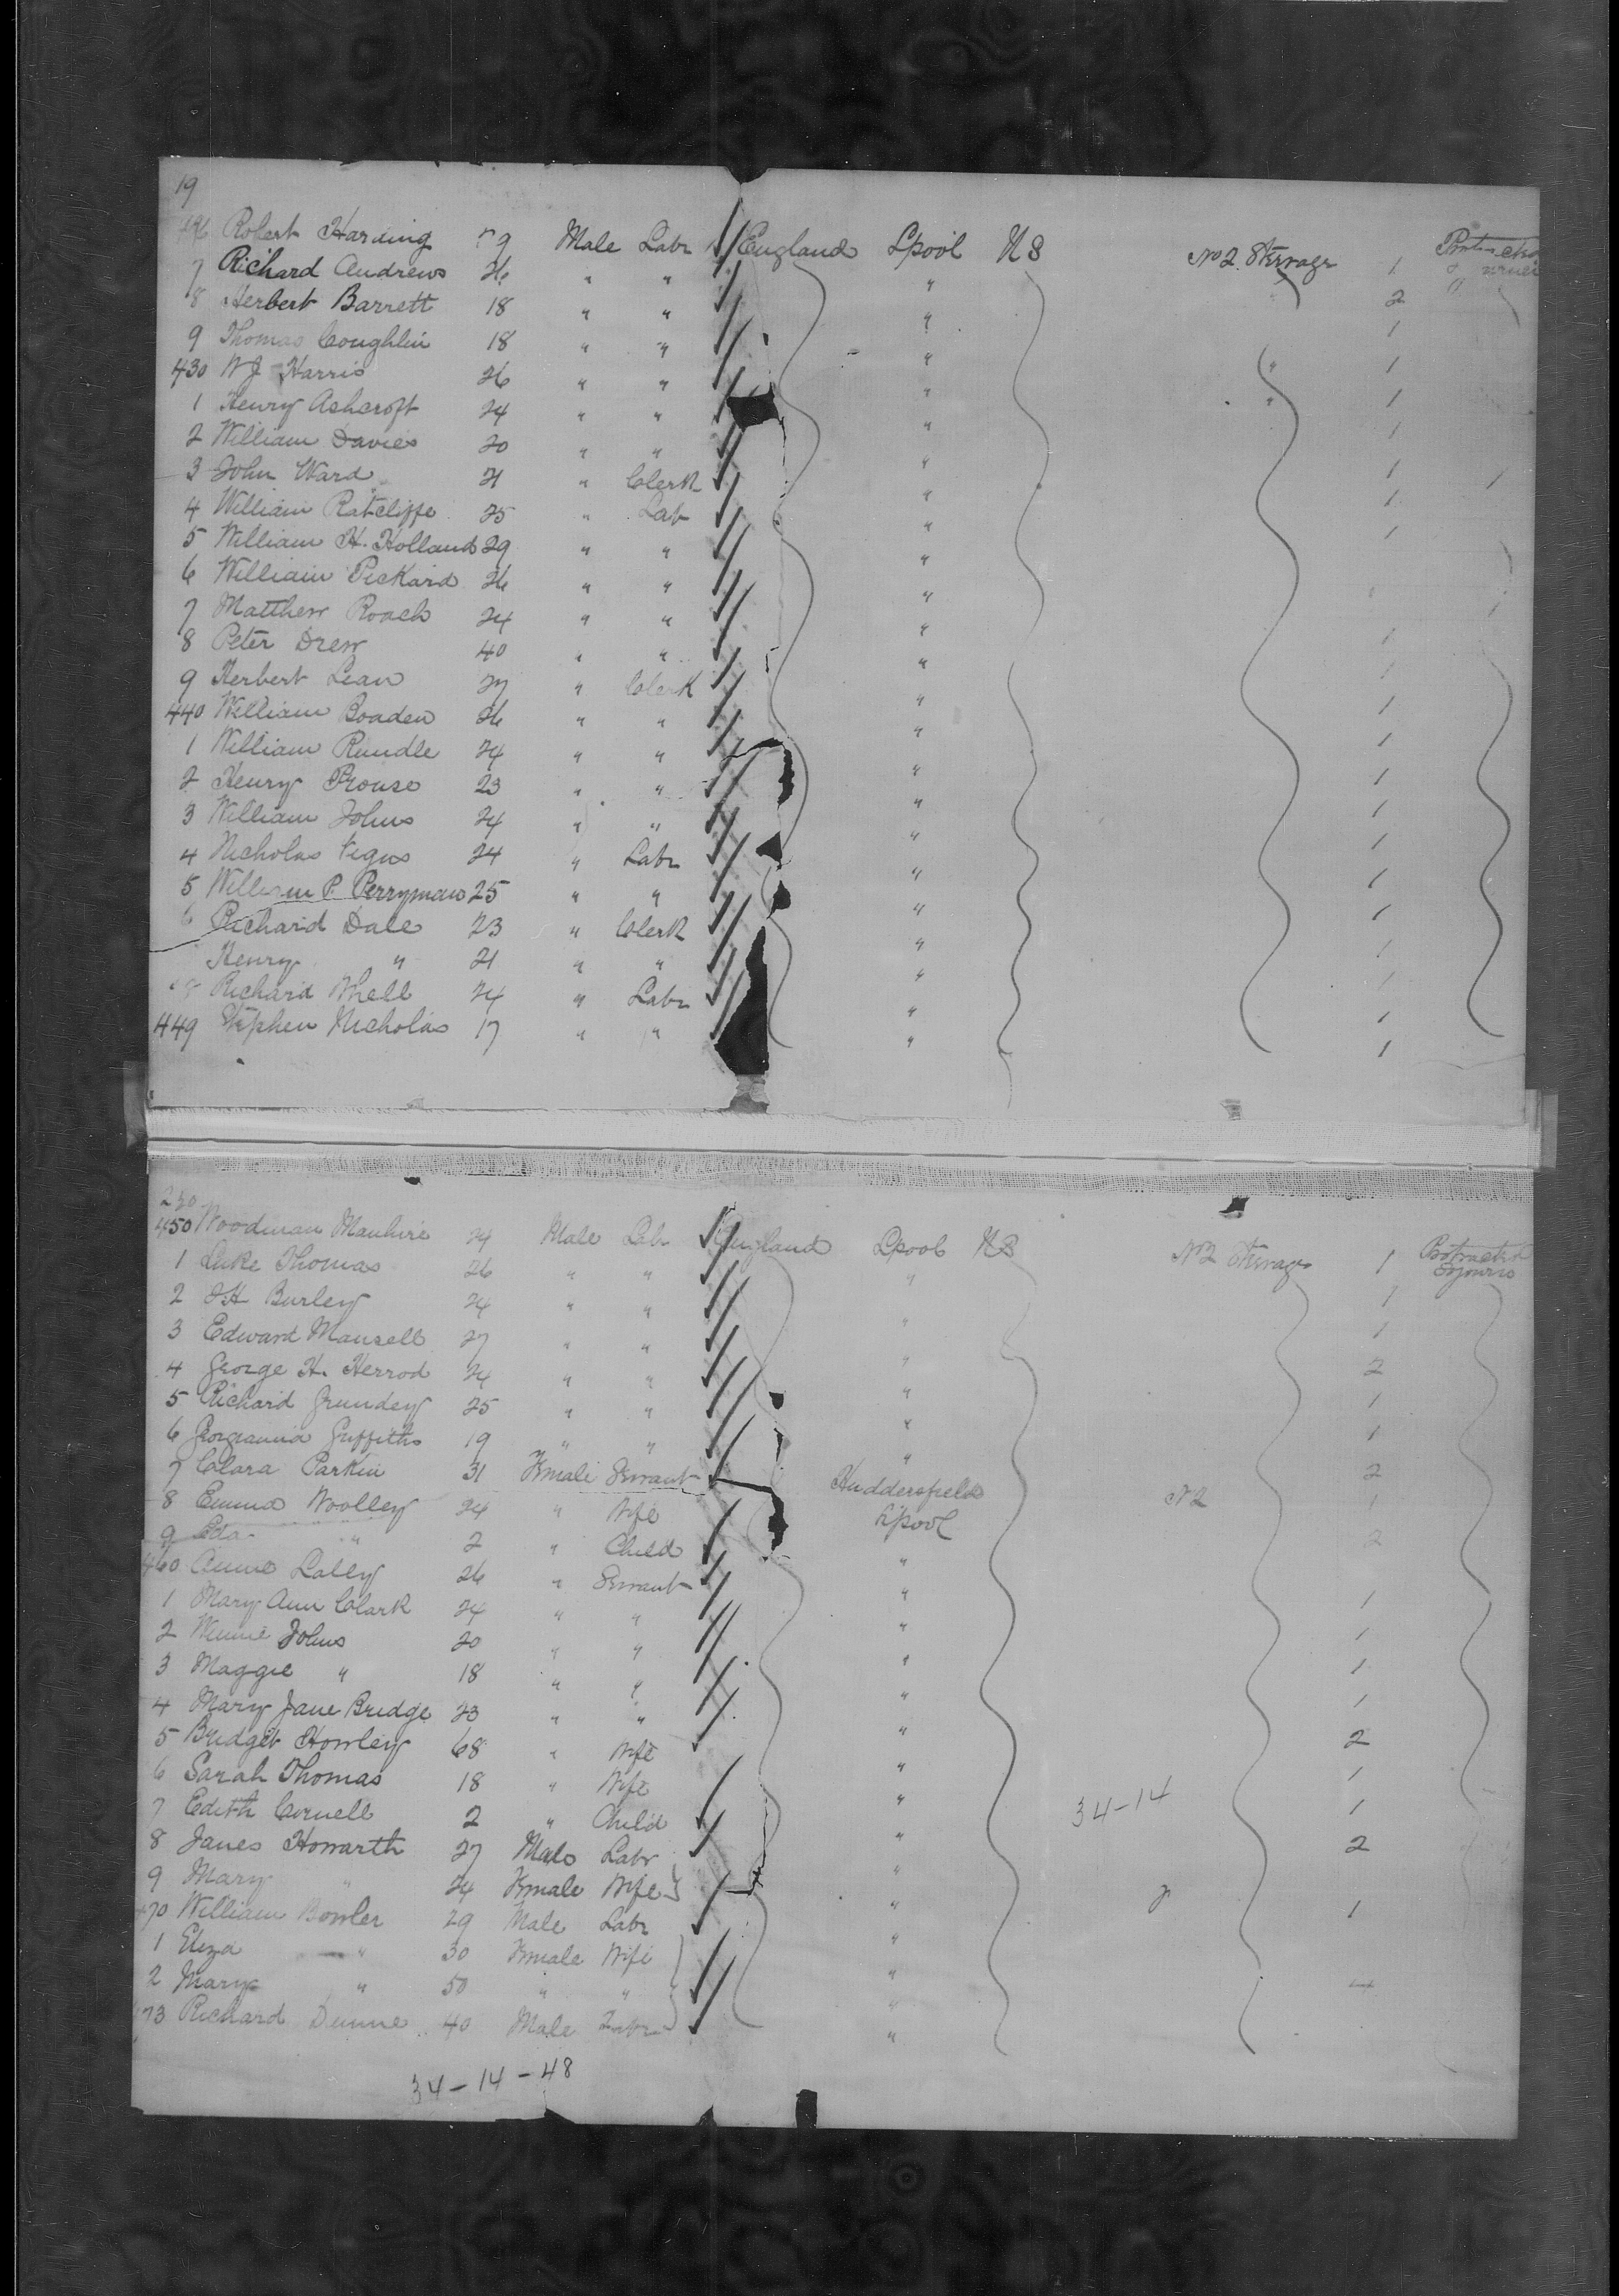 19
Robert Harding Male Labr England Lpool U S No 2 Sterage 1
7 Richard Andrews 26 " " " 2 "
8 Herbert Barrett 18 " " " 1
9 Thomas Coughlin 18 " " " 1
430 W J Harris 26 " " " " 1
1 Henry Ashcroft 24 " " " " 1
2 William Davies 20 " " " 1
3 John Ward 21 " Clerk " 1
4 William Ratcliffe 25 " Lab " 1
5 William H. Holland 29 " " "
6 William Pickard 26 " " "
7 Matthew Roach 24 " " " 1
8 Peter Drew 40 " " " 1
9 Herbert Lean 27 " Clerk " 1
440 William Boaden 26 " " " 1
1 William Rundle 24 " " " 1
2 Henry Prouse 23 " " " 1
3 William Johns 24 " " " 1
4 Nicholas Vigus 24 " Labr " 1
5 William P. Perryman 25 " " " 1
6 Richard Dale 23 " Clerk " 1
Henry " 21 " " " 1
Richard Whell 24 " Labr " 1
449 Stephen Nicholas 17 " " " 1
230
450 Woodman Manhire 24 Male Labr England Lpool U S No 2 Sterage 1 Protracted Sojourn
1 Luke Thomas 26 " " " 1
2 J H Burley 24 " " " 1
3 Edward Mansell 27 " " " 2
4 George H. Herrod 24 " " " 1
5 Richard Grundey 25 " " " 1
6 Georgeanna Griffiths 19 " " " 2
7 Clara Parkin 31 Female Servant Huddersfield No 2 1
8 Emma Woolley 24 " Wife Lpool 2
9 " 2 " Child "
460 Annie Lally 26 " Servant " 1
1 Mary Ann Clark 24 " " " 1
2 Winnie Johns 20 " " " 1
3 Maggie " 18 " " " 1
4 Mary Jane Bridge 23 " " " 2
5 Bridget Howley 68 " Wife " 1
6 Sarah Thomas 18 " Wife " 34-14 1
7 Edith Cornell 2 " Child " 2
8 James Howarth 27 Male Labr "
9 Mary " 24 Female Wife " 1
470 William Bowler 29 Male Labr "
1 Eliza " 30 Female Wife " 4
2 Mary " 50 " " "
473 Richard Dunne 40 Male Labr "
34-14-48